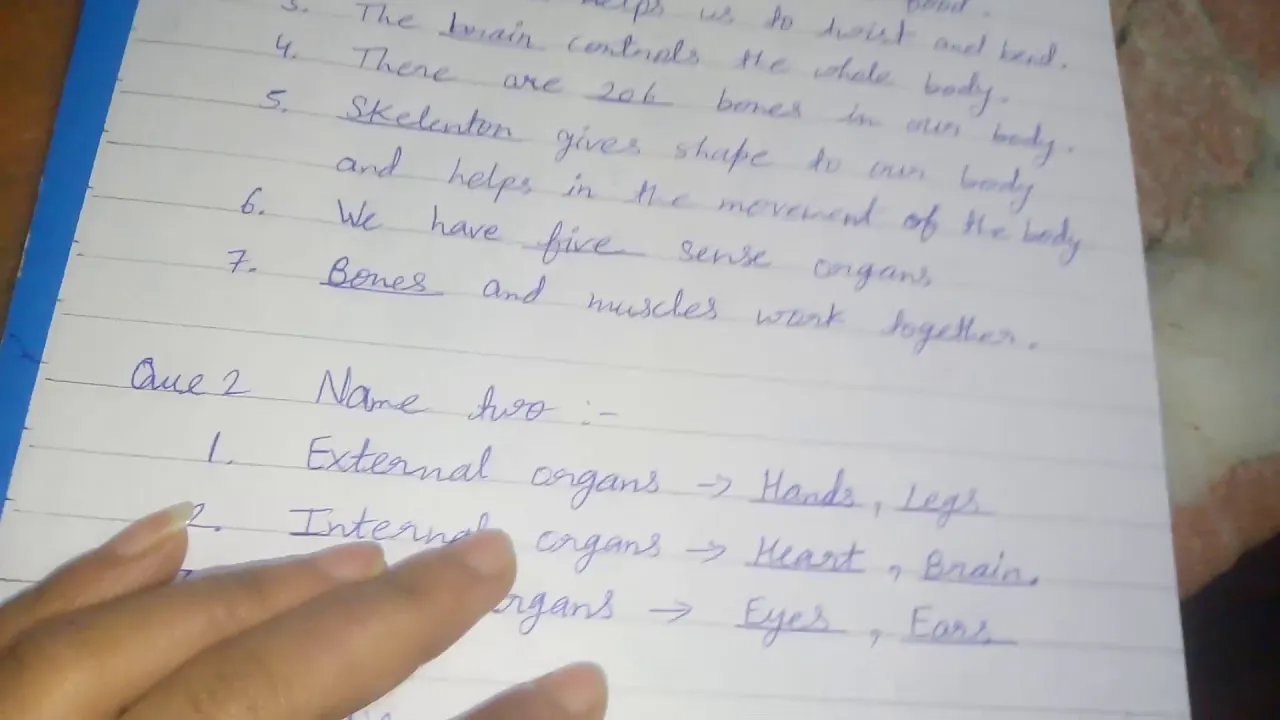 helps us to twist and bend.
3. The brain controls the whole body.
4. There are 206 bones in our body.
5. Skelenton gives shape to our body
and helps in the movement of the body
6. We have five sense organs
7. Bones and muscles work together.
Que 2 Name two :-
1. External organs → Hands, Legs
2. Internal organs → Heart, Brain.
organs → Eyes, Ears